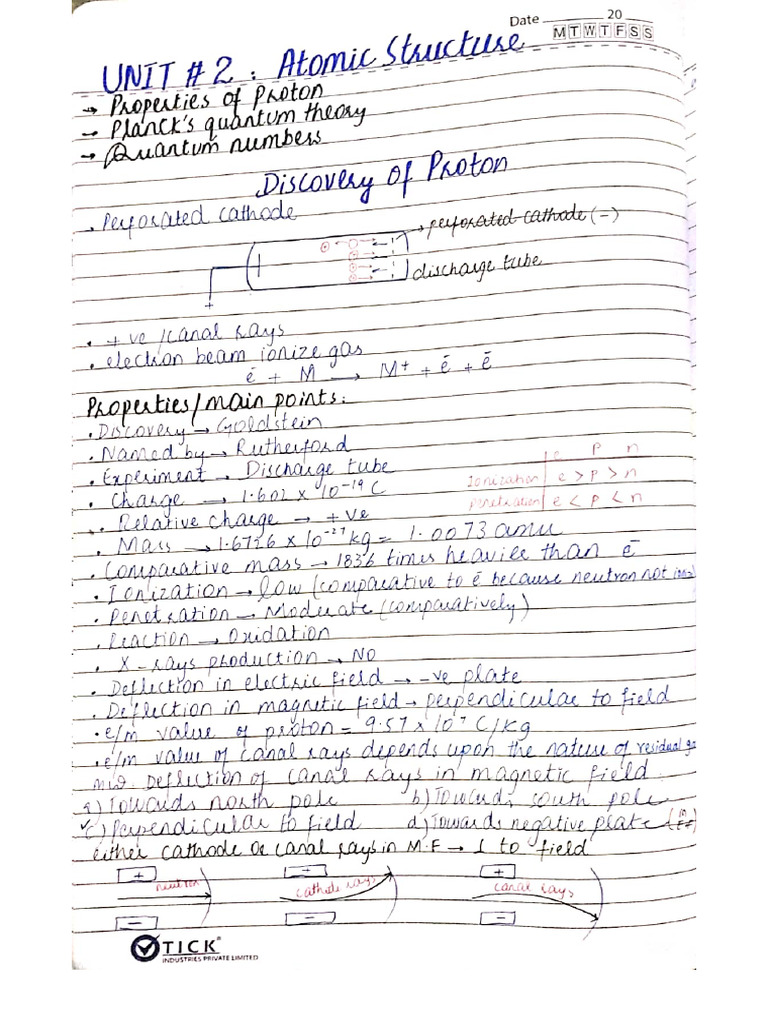 Date ________ 20 __
M T W T F S S
UNIT # 2 : Atomic Structure
→ Properties of Proton
→ Planck's quantum theory
→ Quantum numbers
Discovery of Proton
. Perforated cathode
perforated cathode (-)
discharge tube
+
. +ve /canal rays
. electron beam ionize gas
ē + M → M+ + ē + ē
Properties/main points:
. Discovery → Goldstein
. Named by → Rutherford
. Experiment → Discharge tube
e P n
Ionization e > P > n
Penetration e < P < n
. Charge → 1.602 x 10⁻¹⁹ C
. Relative charge → +ve
. Mass → 1.6726 x 10⁻²⁷ kg = 1.0073 amu
. Comparative mass → 1836 times heavier than ē
. Ionization → low (comparative to ē because neutron not
. Penetration → Moderate (comparatively)
. Reaction → Oxidation
. X-rays production → No
. Deflection in electric field → -ve plate
. Deflection in magnetic field → perpendicular to field
. e/m value of proton = 9.57 x 10⁷ C/kg
. e/m value of canal rays depends upon the nature of residual
Deflection of canal rays in magnetic field
a) Towards north pole b) Towards south pole
✓c) Perpendicular to field d) Towards negative plate
either cathode or canal rays in M.F → ⊥ to field
+ neutron -
+ cathode rays -
+ canal rays -
TICK®
INDUSTRIES PRIVATE LIMITED